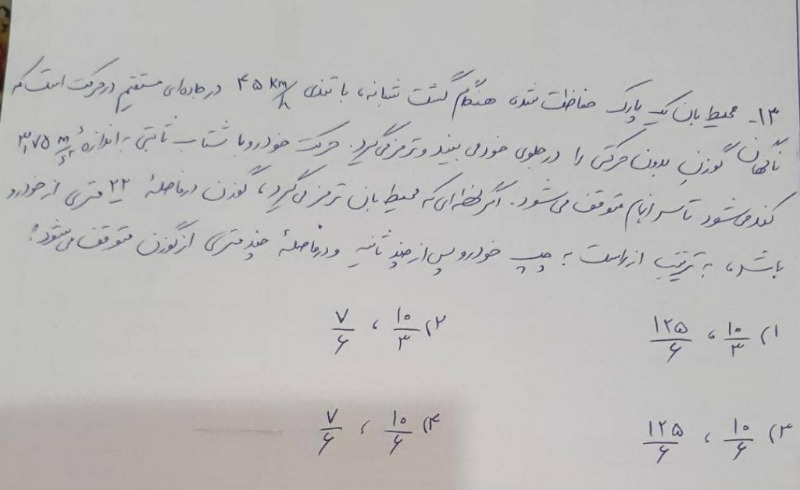 ۱۳- محیط بان یک پارک حفاظت شده، هنگام گشت شبانه، با تندی ۴۵ km/h در جاده‌ای مستقیم در حرکت است که
ناگهان گوزن بدون حرکتی را در جلوی خود می بیند و ترمز می گیرد. حرکت خودرو با شتاب ثابتی به اندازهٔ ۳٫۷۵ m/s²
کند می شود تا سرانجام متوقف می شود. اگر لحظه ای که محیط بان ترمز می گیرد، گوزن در فاصلهٔ ۲۲ متری از خودرو
باشد، به ترتیب از راست به چپ خودرو پس از چند ثانیه و در فاصلهٔ چند متری از گوزن متوقف می شود؟
۱) ۱۰/۳ ، ۱۲۵/۶ ۲) ۱۰/۳ ، ۷/۶
۳) ۱۰/۶ ، ۱۲۵/۶ ۴) ۱۰/۶ ، ۷/۶